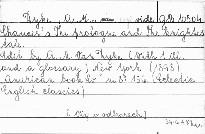 Dyke, A. M. van vide 9D 10504
Chaucer's The prologue and the knight's
tale.
Edit. by A. M. Van Dyke (With 1 ill.
and a glossary) New York (1898)
American book Co 8° S. 154 (Eclectic
English classics)